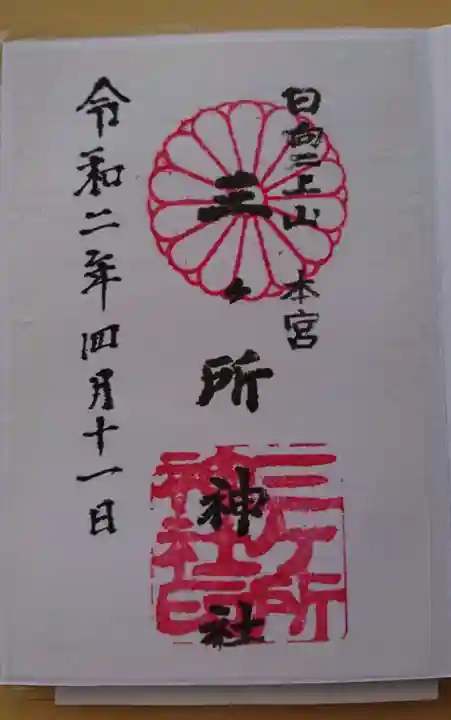 日向二上山 本宮
三ヶ所神社
令和二年四月十一日
三ヶ所
神社印